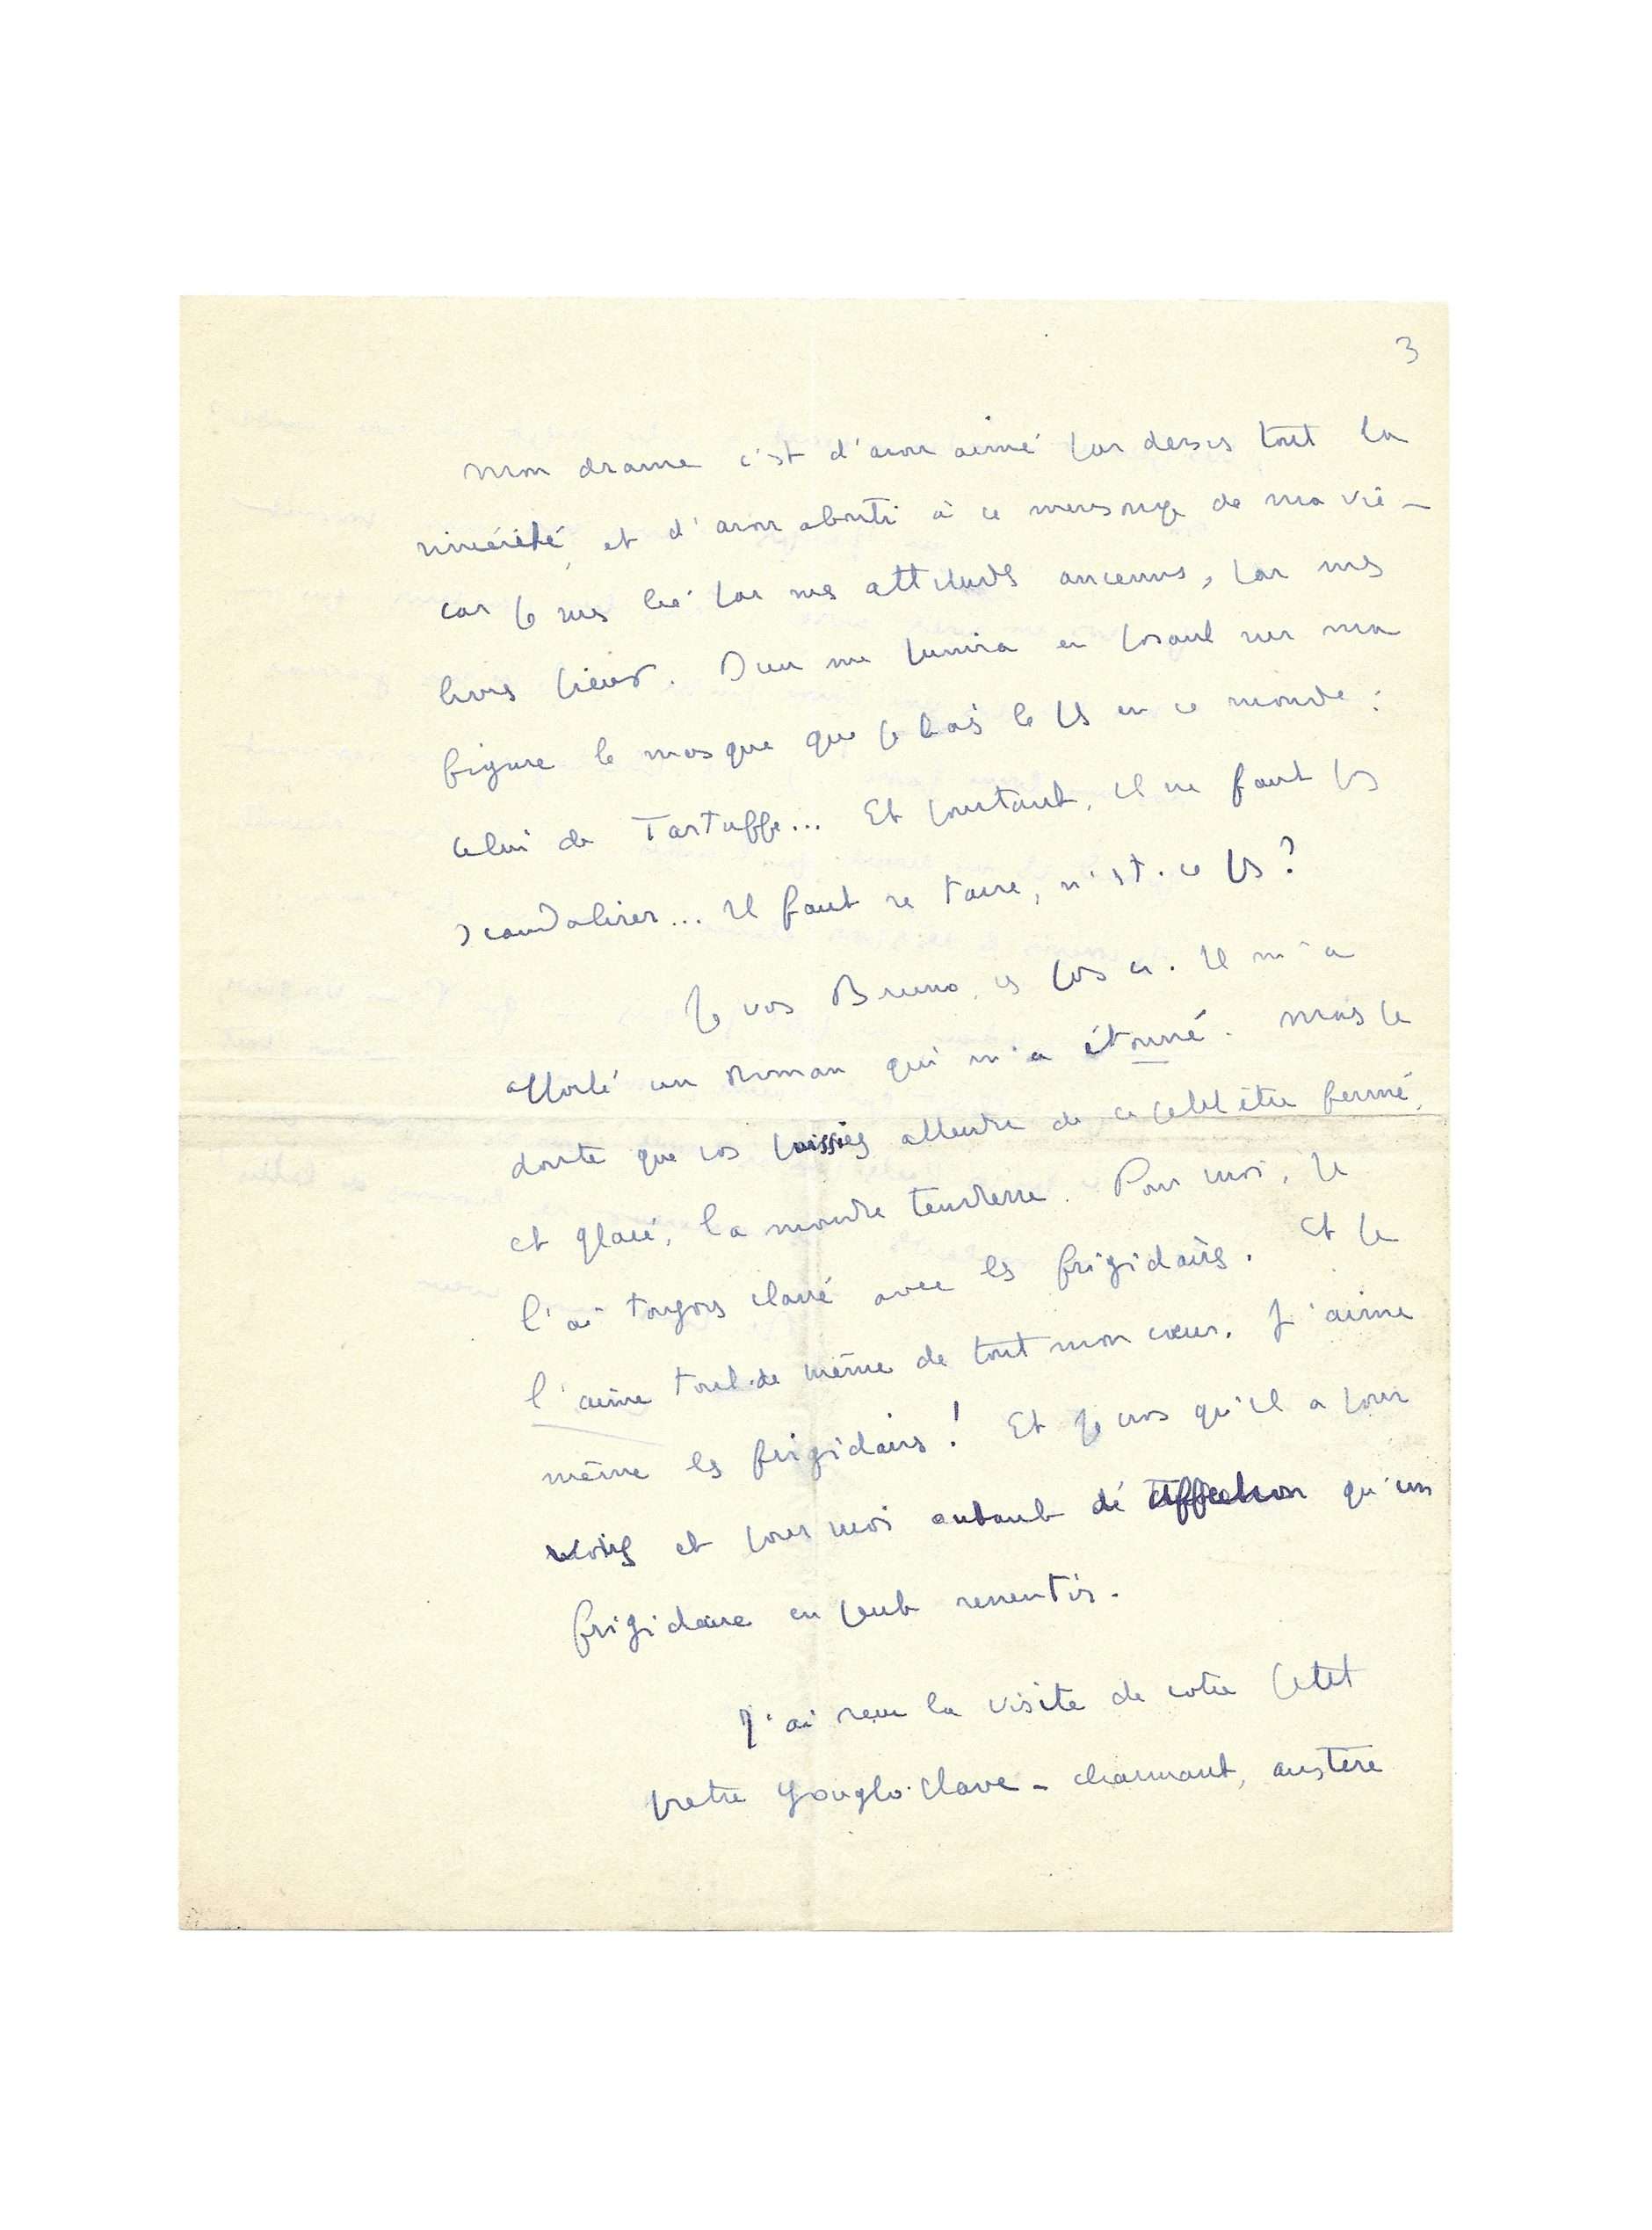 3
Mon drame c'est d'avoir aimé par dessus tout la
sincérité, et d'avoir abouti à ce mensonge de ma vie –
car je suis lié par mes attitudes anciennes, par mes
livres pieux. Dieu me punira en posant sur ma
figure le masque que je hais le plus en ce monde :
celui de Tartuffe... Et pourtant, il ne faut pas
scandaliser... Il faut se taire, n'est-ce pas ?
Je vois Bruno, ces jours ci. Il m'a
apporté un roman qui m'a étonné. Mais je
doute que vous puissiez attendre de ce petit être fermé,
et glacé, la moindre tendresse. Pour moi, je
l'ai toujours classé avec les frigidaires. Et je
l'aime tout de même de tout mon cœur. J'aime
même les frigidaires ! Et je crois qu'il a pour
vous et pour moi autant d'affection qu'un
frigidaire en peut ressentir.
J'ai reçu la visite de votre petit
prêtre yougloslave – charmant, austère